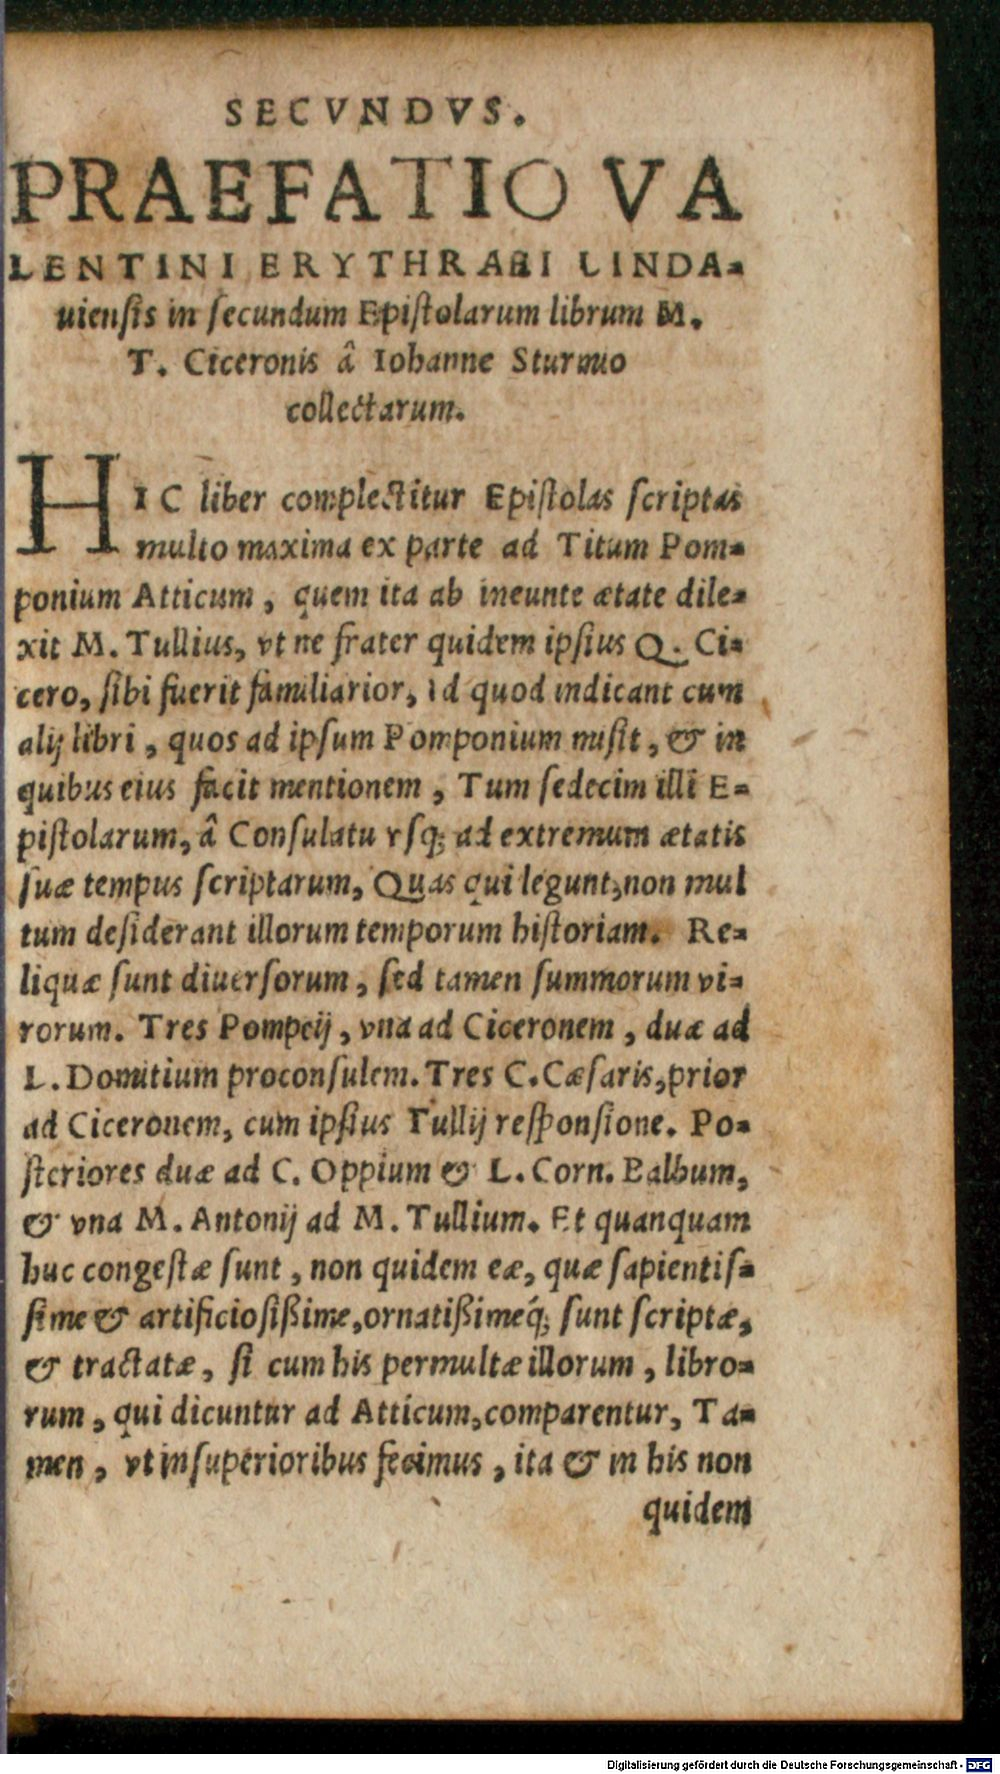 SECVNDVS.
PRAEFATIO VA
LENTINI ERYTHRAEI LINDA-
uiensis in secundum Epistolarum librum M.
T. Ciceronis â Iohanne Sturmio
collectarum.
HIC liber complectitur Epistolas scriptas
multo maxima ex parte ad Titum Pom-
ponium Atticum, quem ita ab ineunte ætate dile-
xit M. Tullius, vt ne frater quidem ipsius Q. Ci-
cero, sibi fuerit familiarior, id quod indicant cum
alij libri, quos ad ipsum Pomponium misit, & in
quibus eius facit mentionem, Tum sedecim illi E-
pistolarum, â Consulatu vsq; ad extremum ætatis
suæ tempus scriptarum, Quas qui legunt, non mul
tum desiderant illorum temporum historiam. Re-
liquæ sunt diuersorum, sed tamen summorum vi-
rorum. Tres Pompeij, vna ad Ciceronem, duæ ad
L. Domitium proconsulem. Tres C. Cæsaris, prior
ad Ciceronem, cum ipsius Tullij responsione. Po-
steriores duæ ad C. Oppium & L. Corn. Balbum,
& vna M. Antonij ad M. Tullium. Et quanquam
huc congestæ sunt, non quidem eæ, quæ sapientis-
sime & artificiosißime, ornatißimeq́; sunt scriptæ,
& tractatæ, si cum his permultæ illorum, libro-
rum, qui dicuntur ad Atticum, comparentur, Ta-
men, vt in superioribus fecimus, ita & in his non
quidem
Digitalisierung gefördert durch die Deutsche Forschungsgemeinschaft - DFG